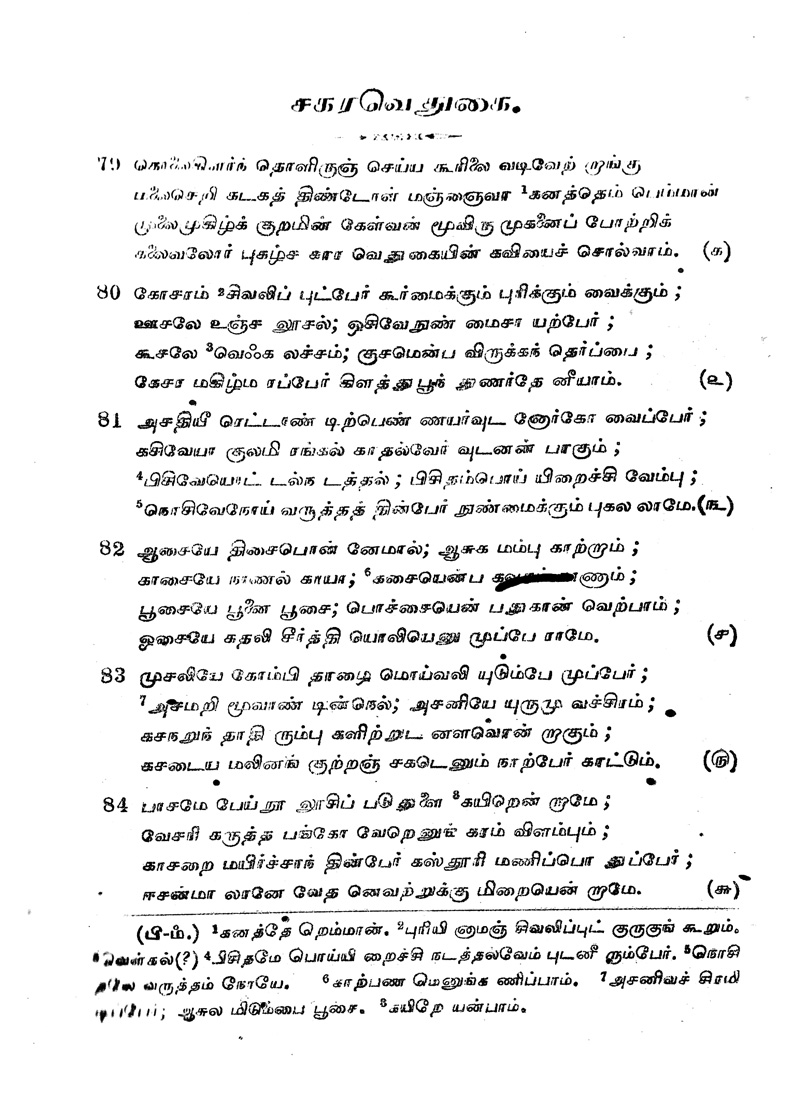 சகரவெதுகை.
79 கொலைகிளர்ந் தொளிருஞ் செய்ய கூரிலை வடிவேற் றாங்கு
மலைசெறி கடகத் திண்டோள் மஞ்ஞைவா ¹கனத்தெம் பெம்மான்
முலைமுகிழ்க் குறமின் கேள்வன் மூவிரு முகனைப் போற்றிக்
கலைவலோர் புகழ்ச கார வெதுகையின் கவியைச் சொல்வாம். (க)
80 கோசரம் ²சிவலிப் புட்பேர் கூர்மைக்கும் புரிக்கும் வைக்கும் ;
ஊசலே உஞ்ச லூசல்; ஒசிவேநுண் மைசா யற்பேர் ;
கூசலே ³வெஃக லச்சம்; குசமென்ப விருக்கந் தெர்ப்பை ;
கேசர மகிழ்ம ரப்பேர் கிளத்துபூந் துணர்தே னீயாம். (உ)
81 அசதியீ ரெட்டாண் டிற்பெண் ணயர்வுட னோர்கோ வைப்பேர் ;
கசிவேயா குலமி ரங்கல் காதல்வேர் வுடனண் பாகும் ;
⁴பிசிவேயொட் டல்ந டத்தல் ; பிசிதம்பொய் யிறைச்சி வேம்பு ;
⁵நொசிவேநோய் வருத்தத் தின்பேர் நுண்மைக்கும் புகல லாமே.(ங)
82 ஆசையே திசைபொன் னேமால்; ஆசுக மம்பு காற்றாம் ;
காசையே நாணல் காயா; ⁶கசையென்ப ணாம் ;
பூசையே பூனை பூசை; பொச்சையென் பதுகான் வெற்பாம் ;
ஓசையே கதலி சீர்த்தி யொலியெனு முப்பே ராமே. (ச)
83 முசலியே கோம்பி தாழை மொய்வலி யுடும்பே முப்பேர் ;
⁷அசமறி மூவாண் டின்நெல்; அசனியே யுருமு வச்சிரம் ;
கசநறுந் தாதி ரும்பு களிற்றுட னளவொன் றாகும் ;
கசடைய மலினங் குற்றஞ் சகடெனும் நாற்பேர் காட்டும். (ரு)
84 பாசமே பேய்நூ லூசிப் படுதுளை ⁸கயிறென் றாமே ;
வேசரி கருத்த பங்கோ வேறெனுங் கரம் விளம்பும் ;
காசறை மயிர்ச்சாந் தின்பேர் கஸ்தூரி மணிப்பொ துப்பேர் ;
ஈசன்மா லானே வேத னெவற்றுக்கு மிறையென் றாமே. (சு)
(பி-ம்.) ¹கனத்தே றெம்மான். ²புரியி னாமஞ் சிவலிப்புட் குருகுங் கூறும்.
³வெள்கல்(?) ⁴பிசிதமே பொய்யி றைச்சி நடத்தல்வேம் புடனீ ரும்பேர். ⁵நொசி
வருத்தம் நோயே. ⁶காற்பண மெனுங்க ணிப்பாம். ⁷அசனிவச் சிரமி
ஆசுல மிடும்பை பூசை. ⁸கயிறே யன்பாம்.